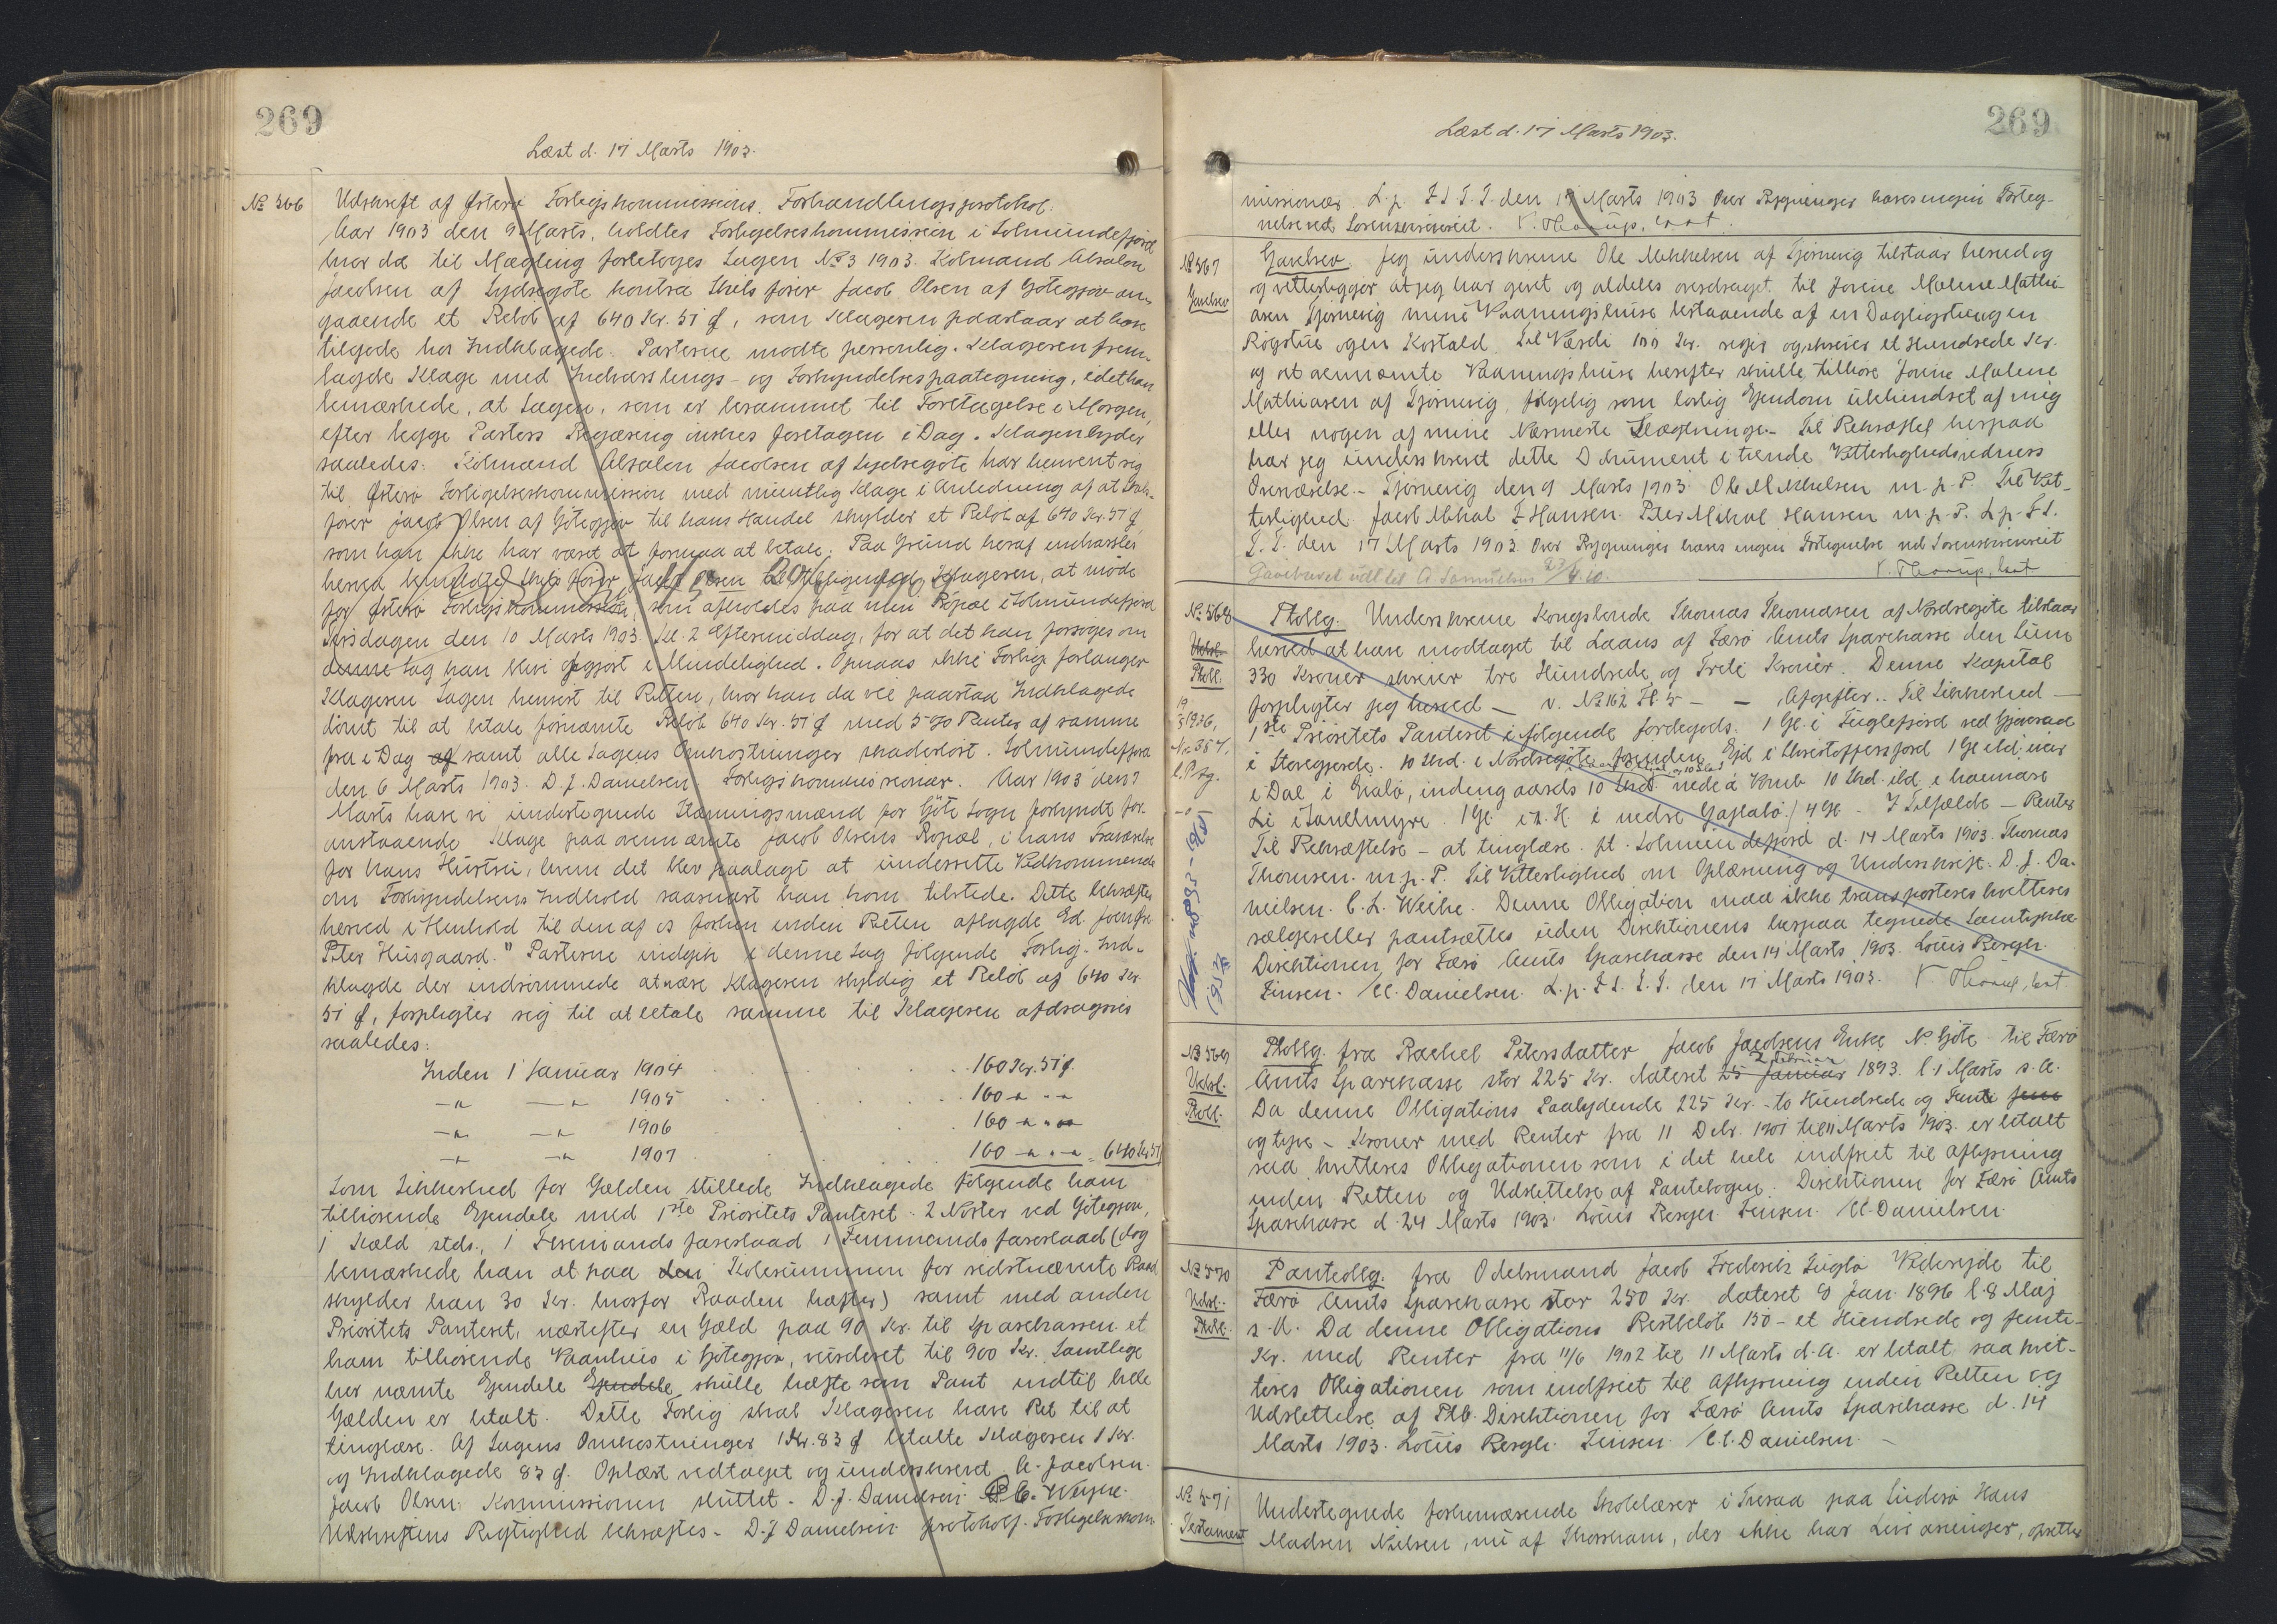 269
Læst d. 17 Marts 1903.
№ 566
Udskrift af Østerø Forligskommissions Forhandlingsprotokol.
Aar 1903 den 9 Marts, holdtes Forligelseskommission i Solmundefjord
hvor da til Mægling foretoges Sagen № 3 1903. Kolmand Absalon
Jacobsen af Sydregøte kontra Skibsfører Jacob Olsen af Gøtegjov an-
gaaende et Beløb af 640 Kr. 51 Ø, som Klageren paastaar at have
tilgode hos Indklagede. Parterne mødte personlig. Klageren frem-
lagde Klage med Indvarslings- og Forkyndelsespaategning, idet han
bemærkede, at Sagen, som er berammet til Foretagelse i Morgen,
efter begge Parters Begæring inskes foretagen i Dag. Klagen lyder
saaledes: Kolmand Absalon Jacobsen af Sydregøte har henvent sig
til Østerø Forligelseskommission med mundtlig Klage i Anledning af at Skibs-
fører Jacob Olsen af Gøtegjov til hans Handel skylder et Beløb af 640 Kr. 51 Ø,
som han ikke har været at formaa at betale. Paa Grund heraf indvarsles
herved Skibsfører Jacob Olsen Klageren, at møde
for Østerø Forligskommission, som afholdes paa min Bopæl i Solmundefjord
Tirsdagen den 10 Marts 1903. Kl. 2 Eftermiddag, for at det kan forsøges om
denne Sag kan blive afgjort i Mindelighed. Opnaas ikke Forlig forlanger
Klageren Sagen henvist til Retten, hvor han da vil paastaa Indklagede
dømt til at betale fornævnte Beløb 640 Kr. 51 Ø med 5 % Renter af samme
fra i Dag af samt alle Sagens Omkostninger skadesløst. Solmundefjord
den 6 Marts 1903. D. J. Danielsen Forligskommissionær. Aar 1903 den 7
Marts have vi undertegnede Stævningsmænd for Gøte Sogn forkyndt for-
anstaaende Klage paa ovennævnte Jacob Olsens Bopæl, i hans Fraværelse
for hans Hustru, hvem det blev paalagt at underrette Vedkommende
om Forkyndelsens Indhold saasnart han kom tilstede. Dette bekræftes
herved i Henhold til den af os forhen inden Retten aflagde Ed.
Peter Husgaard." Parterne indgik i denne Sag følgende Forlig. Ind-
klagde der indrømmede at være Klageren skyldig et Beløb af 640 Kr.
51 Ø, forpligter sig til at betale samme til Klageren afdragsvis
saaledes:
Inden 1 Januar 1904 . . . . 160 Kr. 51 Ø.
-"- -"- 1905 . . . . 160 -"-
-"- -"- 1906 . . . . 160 -"-
-"- -"- 1907 . . . . 160 -"- = 640 Kr 51
Som Sikkerhed for Gælden stillede Indklagede følgende ham
tilhørende Ejendele med 1ste Prioritets Panteret. 2 Nøster ved Gøtegjov,
1 Kæld stds., 1 Firemands farerbaad 1 Femmands farerbaad (dog
bemærkede han at paa den Købesummen for sidstnævnte Baad
skylder han 30 Kr. hvorfor Baaden hæfter) samt med anden
Prioritets Panteret, næstefter en Gæld paa 90 Kr. til Sparekassen et
ham tilhørende Vaanhus i Gøtegjov, vurderet til 900 Kr. Samtlige
her nævnte Ejendele Ejendele skulle hæfte som Pant indtil hele
Gælden er betalt. Dette Forlig skal Klageren have Ret til at
tinglæse. Af Sagens Omkostninger 1 Kr. 83 Ø betalte Klageren 1 Kr.
og Indklagede 83 Ø. Oplæst vedtaget og underskrevet A. Jacobsen.
Jacob Olsen. Kommissionen sluttet. D. J. Danielsen
Udskriftens Rigtighed bekræftes. D. J. Danielsen protokolf. Forligelseskom-
269
Læst d. 17 Marts 1903.
missionær. L. p. F. S. T. T. den 17 Marts 1903 Over Bygninger haves ingen Forteg-
nelse ved Sorenskriveriet. V. Thorup, kst.
№ 567
Gavebrev
Gavebrev. Jeg underskrevne Ole Mikkelsen af Tjørnevig tilstaar herved og
og vitterliggør at jeg har givet og aldeles overdraget til Jovine Malene Mathi-
asen Tjørnevig mine Vaaningshuse bestaaende af en Dagligstue og en
Røgstue og en Kostald. Til Værdi 100 Kr. siger og skriver et Hundrede Kr.
og at ovennævnte Vaaningshuse herefter skulle tilhøre Jovine Malene
Mathiasen af Tjørnevig, følgelig som lovlig Ejendom uklundret af mig
eller nogen af mine Nærmeste Slægtninge. Til Bekræftel herpaa
har jeg underskrevet dette Dokument i tvende Vitterlighedsvidners
Overværelse. Tjørnevig den 9 Marts 1903. Ole Mikkelsen m. p. P. Til Vit-
terlighed. Jacob Mikal F Hansen. Peter Mikal Hansen m. p. P. L. p. F. S.
T. T. den 17 Marts 1903. Over Bygninger haves ingen Fortegnelse ved Sorenskriveriet
V. Thorup, kst
Gavebrevet udl. til A Samuelsen 23/6.10.
№ 568
Udsl.
Pobl.
Pobllg. Underskrevne Kongsbonde Thomas Thomasen af Nordregøte tilstaar
herved at have modtaget til Laans af Færø Amts Sparekasse den Sum
330 Kroner skriver tre Hundrede og Treti Kroner. Denne Kapital
forpligter jeg herved — v. № 162 H 5 — — Afgifter.. Til Sikkerhed —
1ste Prioritets Panteret i følgende Jordegods. 1 Gl. i Fuglefjord ved Gjøveraa
Li i Sandmyre. 1 Gl i n. H i nedre Gaflabø / 4 Gl - I Tilfælde - Renter
Til Bekræftelse - at tinglæse. pt. Solmundefjord d. 14 Marts 1903. Thomas
Thomsen. m. p. P. Til Vitterlighed om Oplæsning og Underskrift. D. J. Da-
nielsen. C. L. Weihe. Denne Obligation maa ikke transporteres kvitteres
sælges eller pantsættes uden Direktionens herpaa tegnede Samtykke
Direktionen for Færø Amts Sparekasse den 14 Marts 1903. Louis Bergh.
Finsen. M. Danielsen. L. p. F. S. T. T. den 17 Marts 1903. V Thorup, kst
№ 569
Udsl.
Pobl.
Pobllg. fra Rachel Petersdatter Jacob Jacobsens Enke N Gøte til Færø
Amts Sparekasse stor 225 Kr. dateret 25 Januar 2 Februar 1893. l. 1 Marts s. A.
Da denne Obligations Paalydende 225 Kr. - to Hundrede og Fem
og tyve - Kroner med Renter fra 11 Dcbr. 1901 til 11 Marts 1903. er betalt
saa kvitteres Obligationen som i det hele indfriet til Aflysning
inden Retten og Udslettelse af Pantebogen. Direktionen for Færø Amts
Sparekasse d. 24 Marts 1903. Louis Bergh. Finsen. M. Danielsen.
№ 570
Udsl.
Pobl.
Panteollg. fra Odelsmand Jacob Frederik Fuglø Viderejde til
Færø Amts Sparekasse stor 250 Kr. dateret 9 Jan. 1896 l. 8 Maj
s. A. Da denne Obligations Restbeløb 150 - et Hundrede og femti-
Kr. med Renter fra 11/6 1902 til 11 Marts d. A. er betalt saa kvit-
teres Obligationen som indfriet til Aflysning inden Retten og
Udslettelse af Ptb. Direktionen for Færø Amts Sparekasse d. 14
Marts 1903. Louis Bergh. Finsen. M. Danielsen.
№ 571
Testament
Undertegnede forhenværende Skolelærer i Sverad paa Suderø Hans
Madsen Nielsen, nu af Thorshavn, der ikke har Livsarvinger, opretter